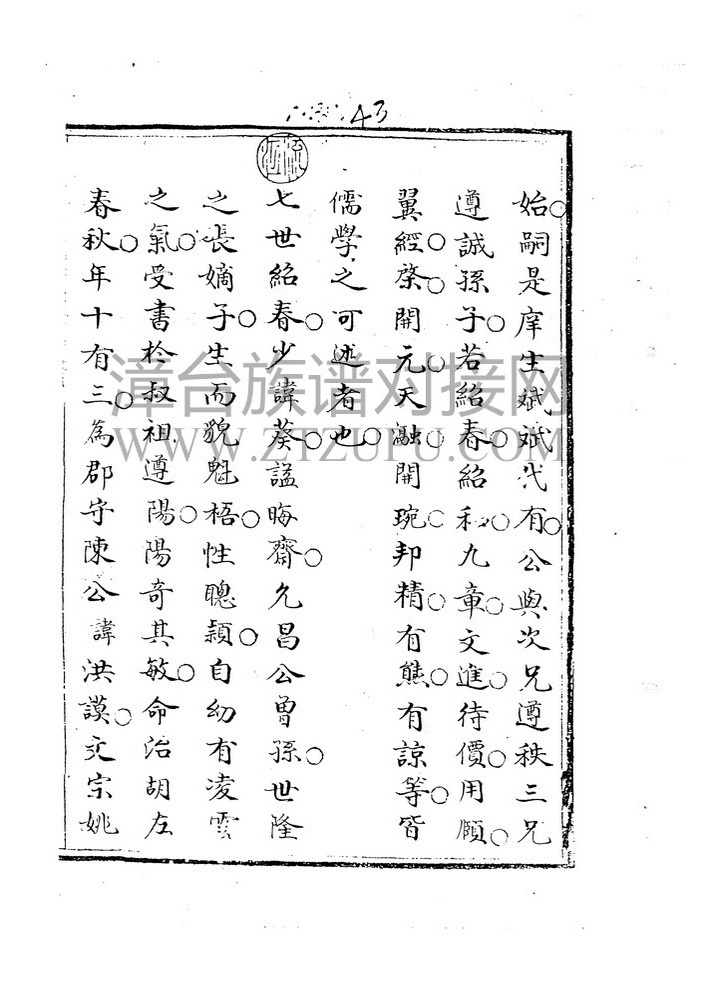 43
始嗣是庠生斌斌代有公與次兄遵秩三兄
遵誠孫子若紹春紹和九章文進待價用願
翼經棨開元天融開琬邦精有熊有諒等皆
儒學之可述者也
七世紹春少諱葵謚晦齋允昌公曽孫世隆
之長嫡子生而貌魁梧性聰穎自幼有凌雲
之氣受書於叔祖遵陽陽奇其敏命治胡左
春秋年十有三為郡守陳公諱洪謨文宗姚
漳台族谱对接网
WWW.ZTZUPU.COM